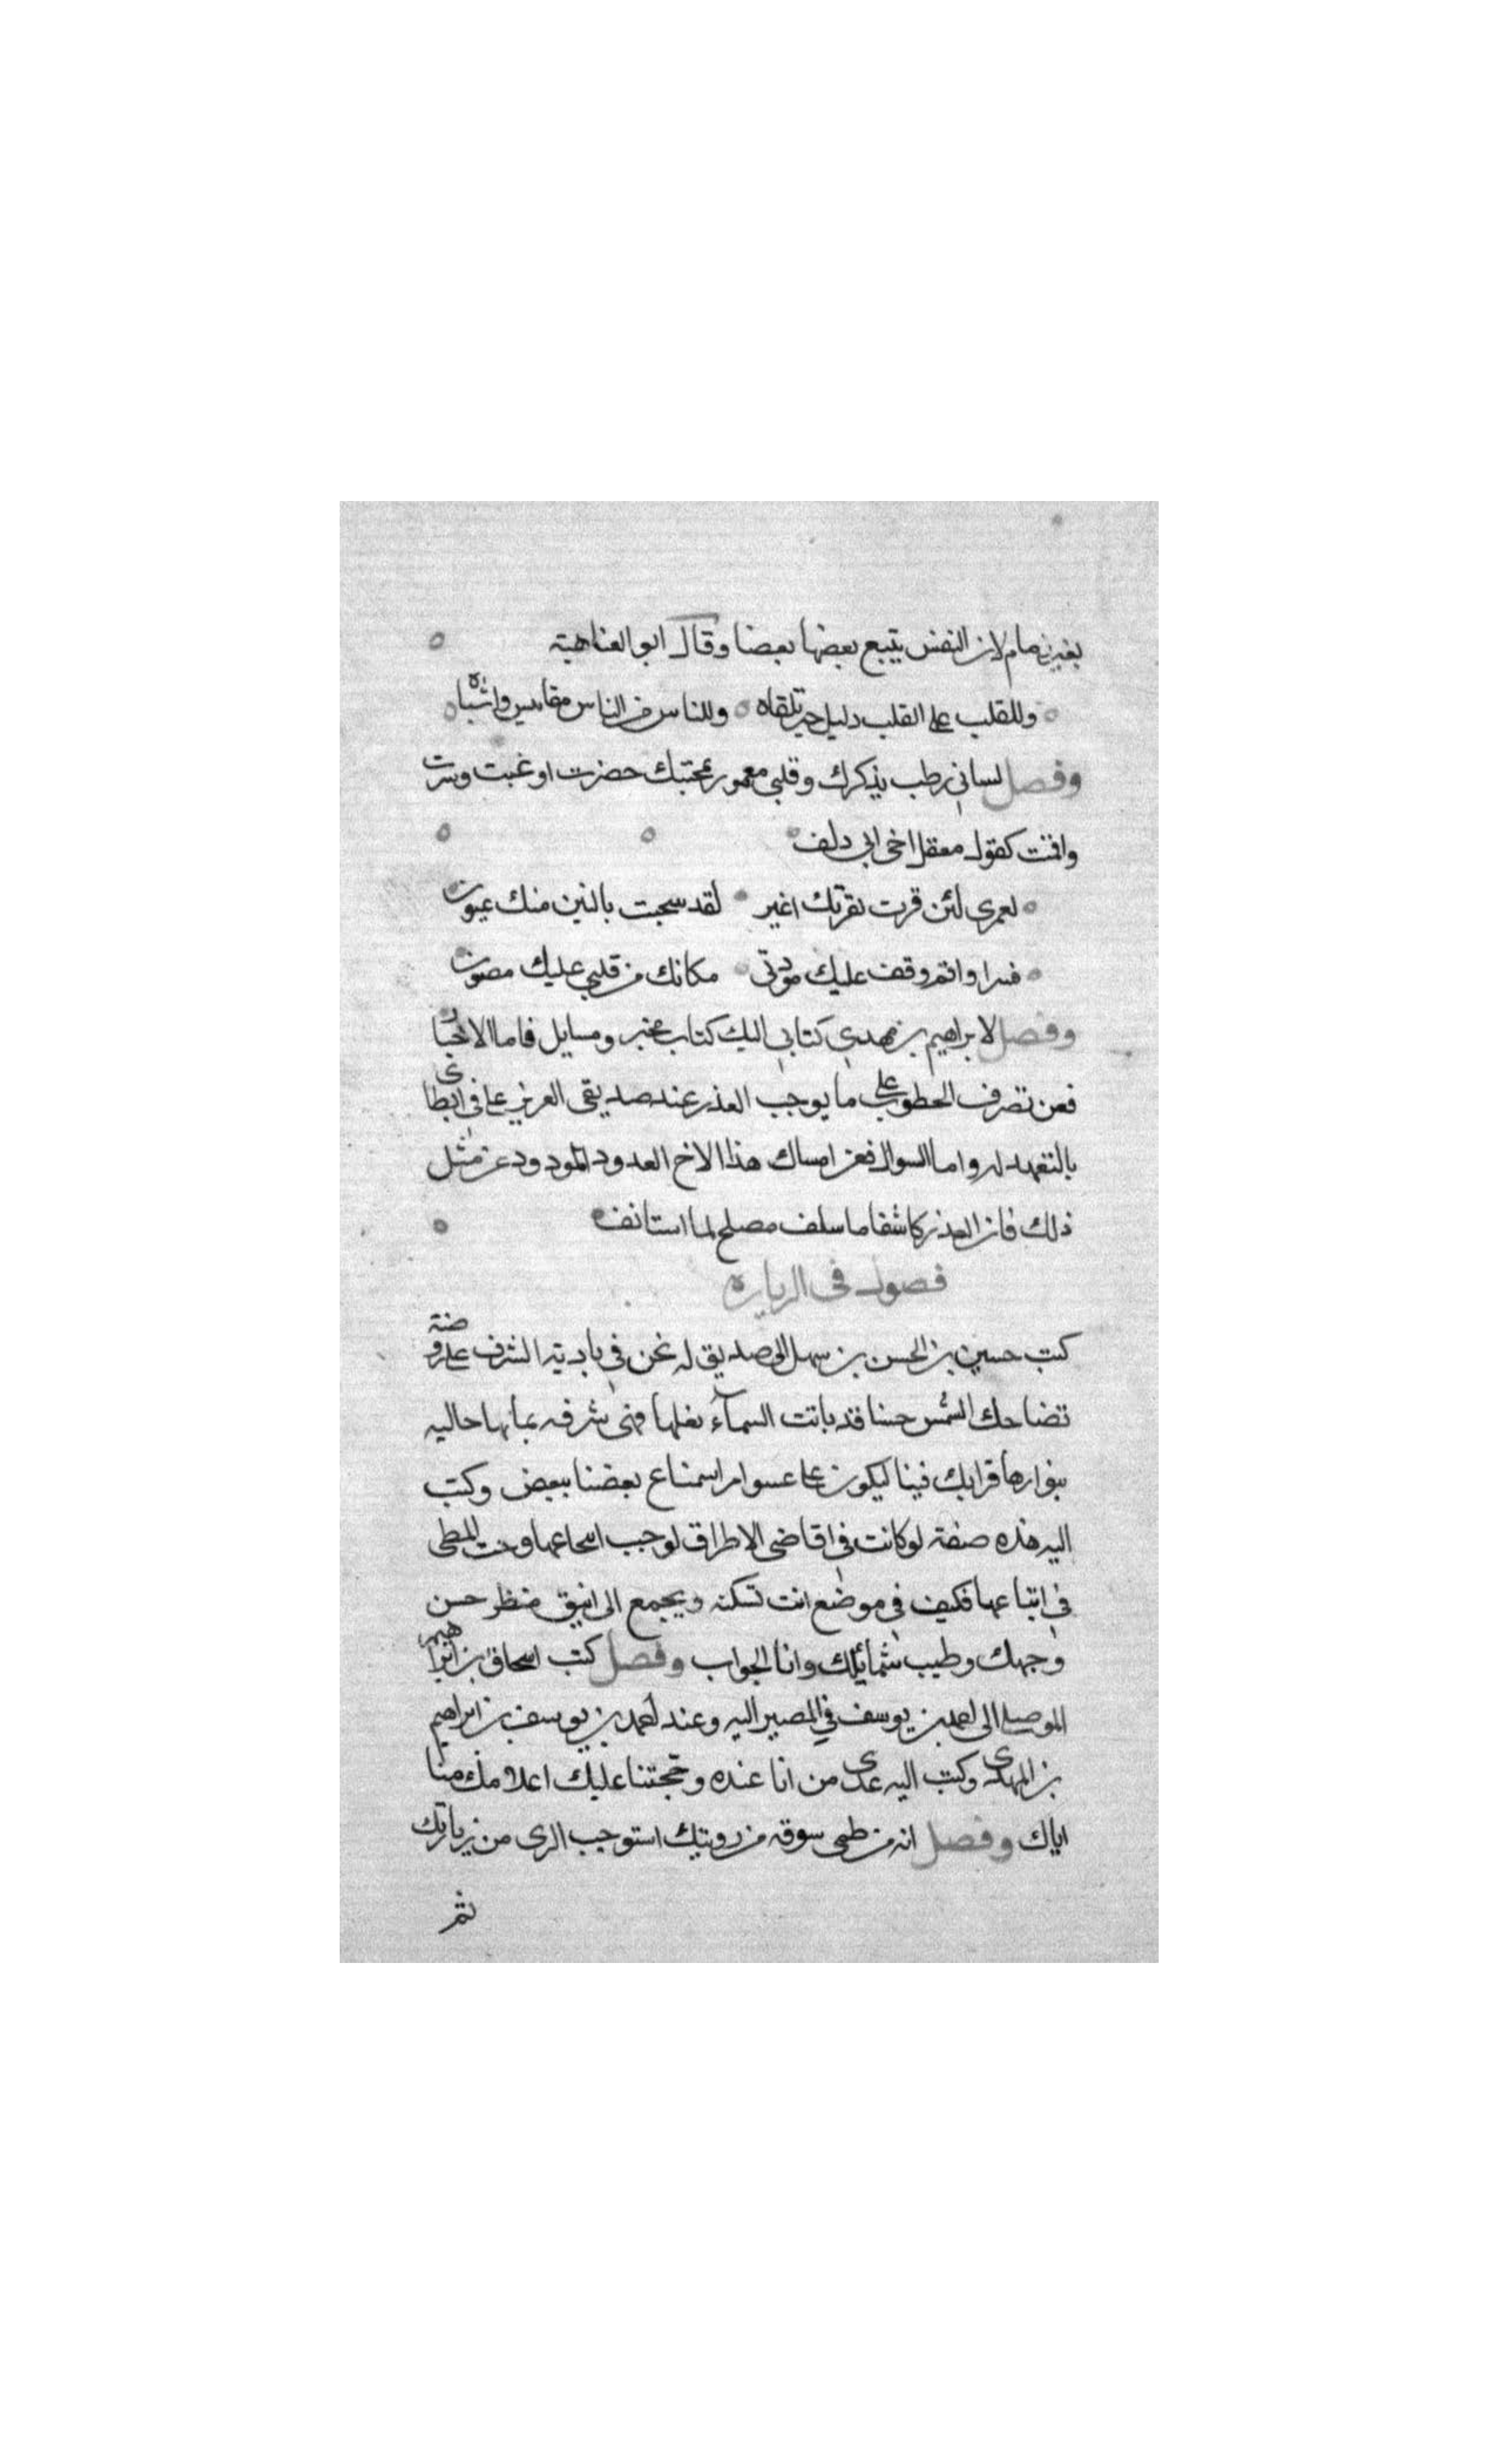 بغير زمام لان النفس يتبع بعضها بعضا وقال ابو العتاهية
وللقلب على القلب دليل حين تلقاه وللناس من الناس مقاييس واشباه
وفصل لساني رطب بذكرك وقلبي معمور بمحبتك حضرت او غبت وسرت
واقمت كقول معقل اخي ابي دلف
لعمري لئن قرت بقربك اعين لقد سخنت بالبين منك عيون
فسر او اقم وقف عليك مودتي مكانك من قلبي عليك مصون
وفصل لابراهيم بن مهدي كتابي اليك كتاب مخبر ومسايل فاما الاخبار
فعن تصرف الخطوب على ما يوجب العذر عند صديقي العزيز علي في ابطائي
بالتعهد له واما السوال فعن امساك هذا الاخ العدود المودود عن مثل
ذلك فان العذر كاشفا ما سلف مصلح لما استانف
فصول في الزياره
كتب حسين بن الحسن بن سهل الى صديق له نحن في بادية الشرف على روضة
تضاحك الشمس حسنا قد باتت السمآء تعلها فهي شرفه بمايها حاليه
بنوارها فرايك فينا ليكون على سوا من استمتاع بعضنا ببعض وكتب
اليه هذه صفة لو كانت في اقاصي الاطراف لوجب انتجاعها وحث المطي
في ابتاعها فكيف في موضع انت تسكنه ويجمع الى انيق منظر حسن
وجهك وطيب شمائلك وانا الجواب وفصل كتب اسحاق بن ابراهيم
الموصلي الى احمد بن يوسف في المصير اليه وعند احمد بن يوسف بن ابراهيم
بن المهدي وكتب اليه عندي من انا عنده وحجتنا عليك اعلامك منا
اياك وفصل انه من ظمي شوقه من رويتك استوجب الري من زيارتك